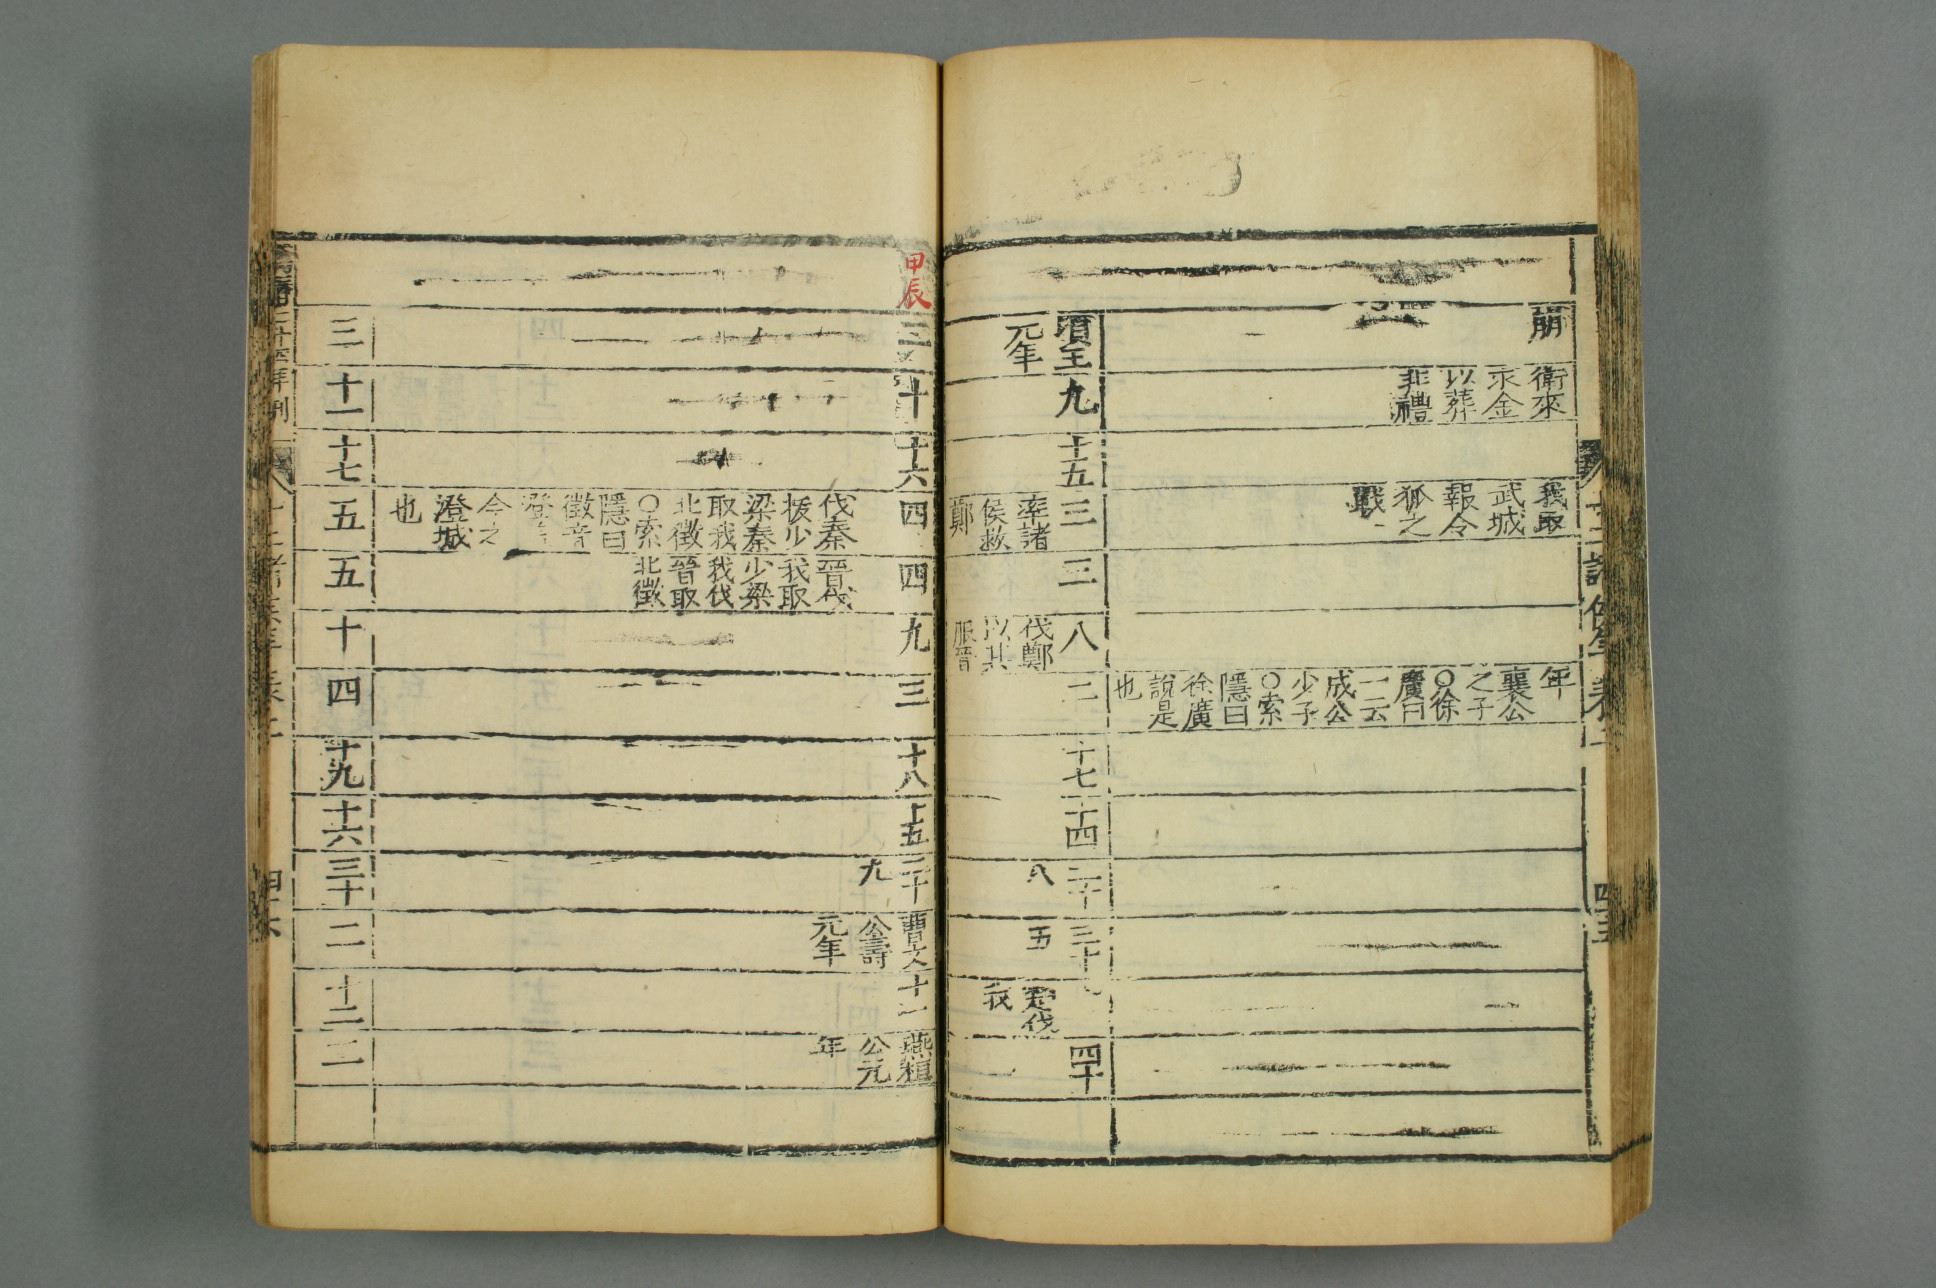 崩
衛來
求金
以葬
非禮
我取
武城
報令
狐之
戰
年
襄公
之子
○徐
廣曰
一云
成公
少子
○索
隱曰
徐廣
說是
也
頃王
元年
九
十五
三
率諸
侯救
鄭
三
八
伐鄭
以其
服晉
二
十七
十四
二十
八
三十
五
楚伐
我
四十
十二諸侯年表二
四十五
甲辰
二
十
十六
四
伐秦
拔少
梁秦
取我
北徵
○索
隱曰
徵音
澄音
今之
澄城
也
四
晉伐
我取
少梁
我伐
晉取
北徵
九
三
十八
十五
二十
九
曹文
公壽
元年
十一
燕桓
公元
年
三
十一
十七
五
五
十
四
十九
十六
三十
二
十二
二
十二諸侯年表二
四十六